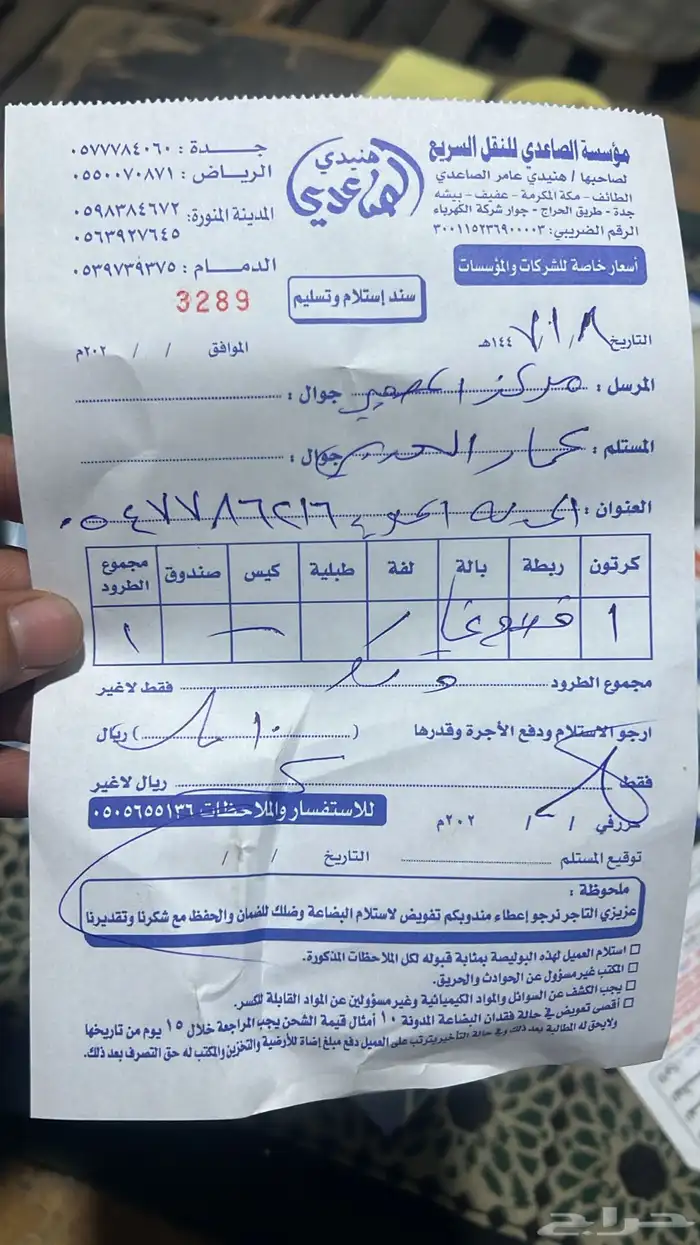 مؤسسة الصاعدي للنقل السريع
لصاحبها / هنيدي عامر الصاعدي
الطائف - مكة المكرمة - عفيف - بيشه
جدة - طريق الحراج - جوار شركة الكهرباء
الرقم الضريبي: ٣٠٠١١٥٢٣٦٩٠٠٠٠٣
أسعار خاصة للشركات والمؤسسات
هنيدي
الصاعدي
جـــدة : ٠٥٧٧٧٨٤٠٦٠
الرياض : ٠٥٥٠٠٧٠٨٧١
المدينة المنورة: ٠٥٩٨٣٨٤٦٧٢
٠٥٦٣٩٢٧٦٤٥
الدمام : ٠٥٣٩٧٣٩٣٧٥
3289
سند إستلام وتسليم
التاريخ ٨ / ١ / ١٤٤٧هـ الموافق / / ٢٠٢م
المرسل : مركز جوال :
المستلم : عمار جوال :
العنوان : المدينة ٠٥٤٧٧٨٦٢١٦
كرتون ربطة بالة لفة طبلية كيس صندوق مجموع الطرود
١ ١
مجموع الطرود فقط لاغير
ارجو الاستلام ودفع الأجرة وقدرها ( ) ريال
فقط ريال لاغير
حرر في / / ٢٠٢م
للاستفسار والملاحظات ٠٥٠٥٦٥٥١٣٦
توقيع المستلم التاريخ / /
ملحوظة :
عزيزي التاجر نرجو إعطاء مندوبكم تفويض لاستلام البضاعة وضلك للضمان والحفظ مع شكرنا وتقديرنا
استلام العميل لهذه البوليصة بمثابة قبوله لكل الملاحظات المذكورة.
المكتب غير مسؤول عن الحوادث والحريق.
يجب الكشف عن السوائل والمواد الكيميائية وغير مسؤولين عن المواد القابلة للكسر.
أقصى تعويض في حالة فقدان البضاعة المدونة ١٠ أمثال قيمة الشحن يجب المراجعة خلال ١٥ يوم من تاريخها
ولايحق له المطالبة بعد ذلك وفي حالة التأخير يترتب على العميل دفع مبلغ إضافة للأرضية والتخزين والمكتب له حق التصرف بعد ذلك.
حراج